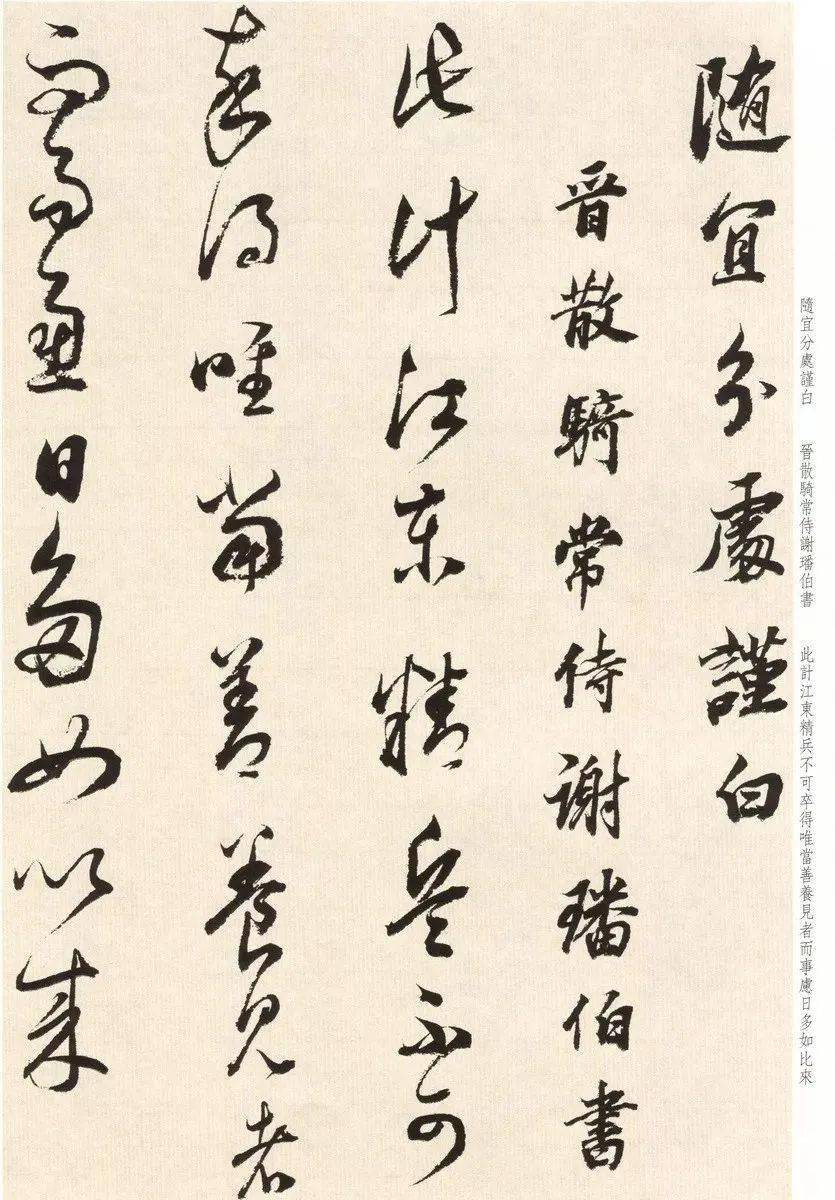 隨宜分處謹白
晉散騎常侍謝璠伯書
此計江東精兵不可
卒得唯當善養見者
而事慮日多如比來
隨宜分處謹白　晉散騎常侍謝璠伯書　此計江東精兵不可卒得唯當善養見者而事慮日多如比來